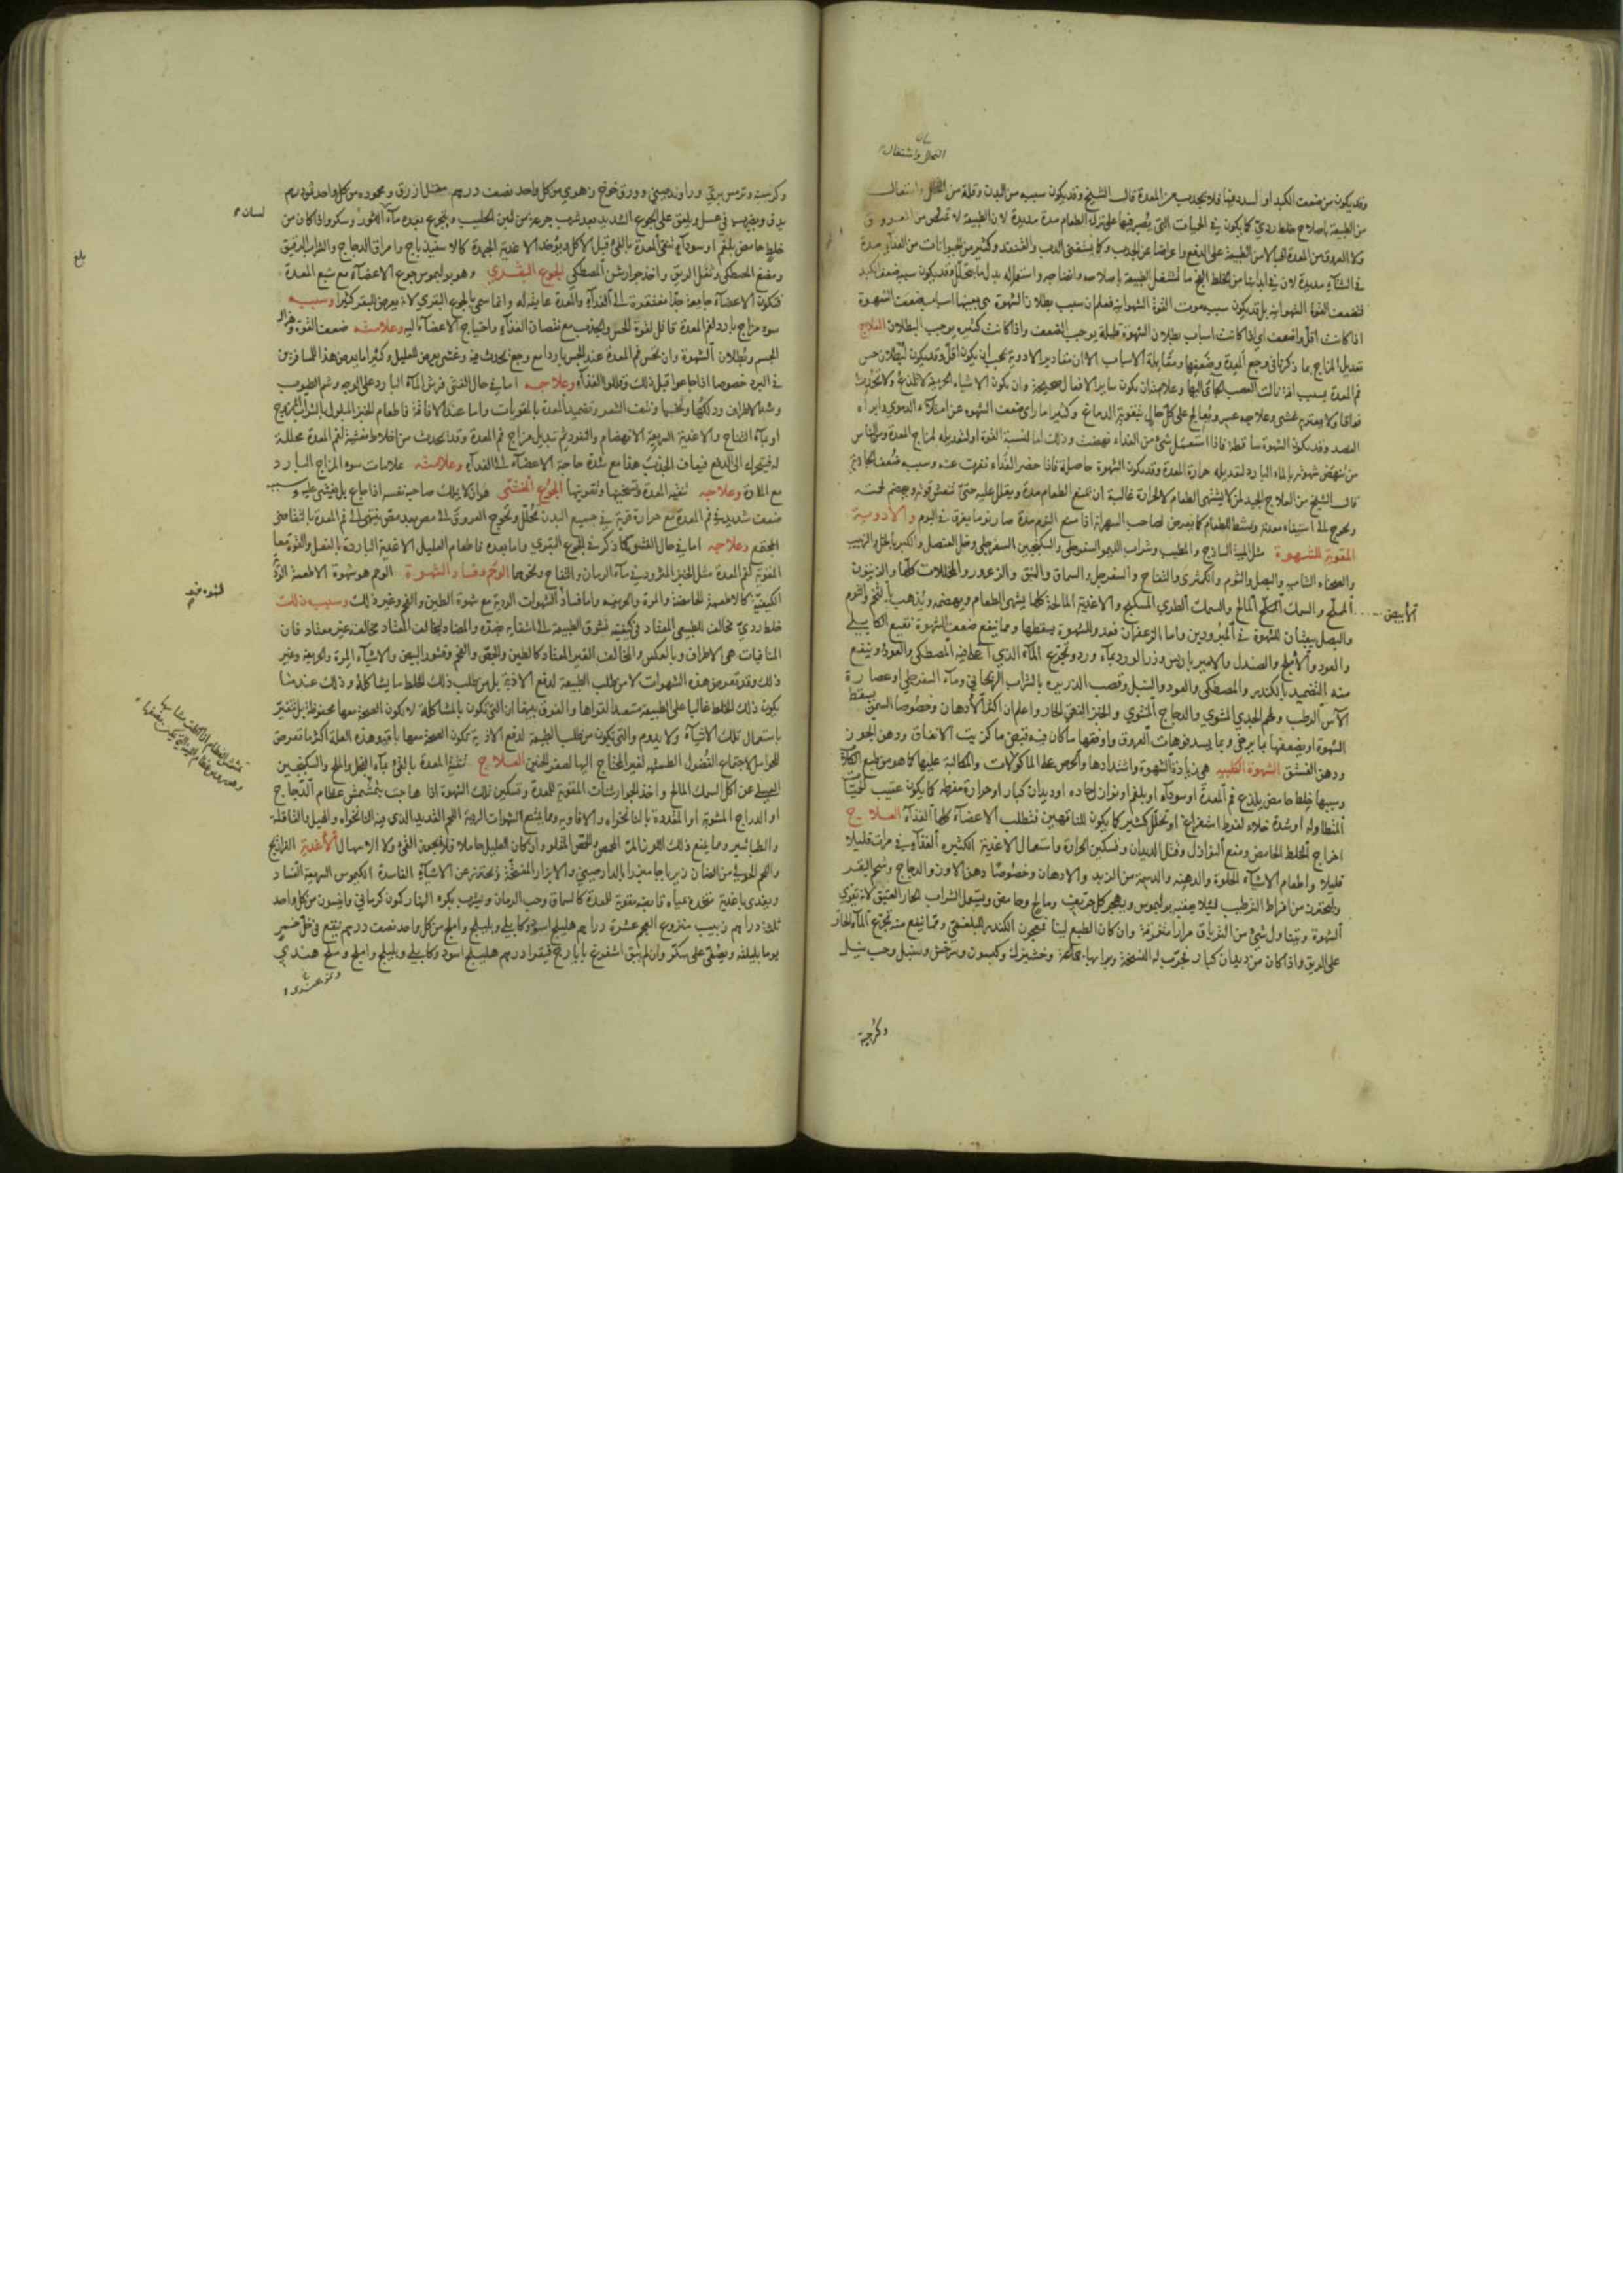 التحلل واشتغال
وقد يكون من ضعف الكبد او السدد فيها فلا يجذب من المعدة قال الشيخ وقد يكون سببه من البدن وقلة من التحلل واشتغال
من الطبيعة باصلاح خلط ردي كما يكون في الحميات التي يصبر فيها على ترك الطعام مدة مديدة لان الطبيعة لا تمتص من العروق
ولا العروق من المعدة اقبالا من الطبيعة على الدفع واعراضا عن الجذب وكما يستغنى الدب والقنفد وكثير من الحيوانات من الغذاء مدة
في الشتاء مديدة لان في ابدانها من الخلط الفج ما تشتغل الطبيعة باصلاحه وانضاجه واستعماله بدل ما يتحلل وقد يكون سببه ضعف الكبد
فتضعف القوة الشهوانية بل قد يكون سببه موت القوة الشهوانية فعلم ان سبب بطلان الشهوة هي بعينها اسباب ضعف الشهوة
اذا كانت اقل واضعف اي اذا كانت اسباب بطلان الشهوة قليلة يوجب الضعف واذا كانت كثيرة يوجب البطلان العلاج
تعديل المزاج بما ذكرنا في وجع المعدة وضعفها ومقابلة الاسباب الا ان مقادير الادوية يجب ان يكون اقل وقد يكون لبطلان حس
فم المعدة بسبب افة نالت العصب الجائي اليها وعلامته ان يكون ساير الافعال صحيحة وان يكون الاشياء الحريفة لا تلذع ولا تحدث
فواقا ولا يعتريه غشي وعلاجه عسر ويعالج على كل حال بتقوية الدماغ وكثيرا ما راى ضعف الشهوة عن امتلاء الدموي وابراه
الفصد وقد يكون الشهوة ساقطة فاذا استعمل شئ من الغذاء نهضت وذلك اما لتنبيه القوة او لتعديله لمزاج المعدة ومن الناس
من تنهض شهوته بالماء البارد لتعديله حرارة المعدة وقد يكون الشهوة حاصلة فاذا حضر الغذاء نفرت عنه وسببه ضعف الجاذبة
قال الشيخ من العلاج الجيد لمن لا يشتهى الطعام لا لحرارة غالبة ان يمنع الطعام مدة ويقلل عليه حتى تنتعش قوته ويهضم تخمته
ويحوج الى استنقاء معدته وينشط للطعام كما يعرض لصاحب السهر انه اذا منع النوم مدة صار نوما يغرق في النوم والادوية
المقوية للشهوة مثل الميبة الساذج والمطيب وشراب الليمو السفرجلي والسكنجبين السفرجلي وخل العنصل والكبر بالخل والزبيب
والصحناه الشامية والبصل والثوم والكمثرى والتفاح والسفرجل والسماق والنبق والزعرور والمخللات كلها والزيتون
المملح والسمك المملح المالح والسمك الطري المسكبج والاغذية المالحة كلها يشهى الطعام ويهضمه ويذهب بالتخم والثوم
تمالابيض
والبصل يبعثان الشهوة في المبرودين واما الزعفران فعدو للشهوة يسقطها ومما ينفع ضعف الشهوة نقيع الكابلي
والعود والاملج والصندل والامبرباريس وزر الورد بماء ورد وتجرع الماء الذي اغلى فيه المصطكى والعود وينفع
منه التضميد بالكندر والمصطكى والعود والسنبل وقصب الذريرة بالشراب الريحاني وماء السفرجل او عصارة
الآس الرطب ولحم الجدي المشوي والدجاج المشوي والخبز النقي الحار واعلم ان اكثر الادهان وخصوصا السمن يسقط
الشهوة او يضعفها بما يرخى وبما يسد فوهات العروق واوفقها ما كان فيه قبض ما كزيت الانفاق ودهن الجوز
ودهن الفستق الشهوة الكلبية هي زيادة الشهوة واشتدادها والحرص على الماكولات والمكالبة عليها كما هو من طبع الكلاب
وسببها خلط حامض يلذع فم المعدة او سوداء او بلغم او نوازل حادة او ديدان كبار او حرارة مفرطة كما يكون عقيب الحميات
المتطاولة او شدة خلاء لفرط استفراغ او تحلل كثير كما يكون للناقهين فتطلب الاعضاء كلها الغذاء العلاج
اخراج الخلط الحامض ومنع النوازل وقتل الديدان وتسكين الحرارة واستعمال الاغذية الكثيرة الغذاء في مرات قليلا
قليلا واطعام الاشياء الحلوة والدهنة والدسمة من الزبد والادهان وخصوصا دهن الاوز والدجاج وشحم البقر
وليحترز من افراط الترطيب لئلا يعقبه بوليموس ويهجر كل حريف ومالح وحامض ويستعمل الشراب الحار العتيق لانه يقوي
الشهوة ويتناول شئ من الترياق مرارا متفرقة وان كان الطبع لينا فمعجون الكندر البلغمي ومما ينفع منه تجرع الماء الحار
على الريق واذا كان من ديدان كبار تجرب له النسخة وخشيزك وكمسون وسرخس وسنبل وحب نيل
وكرجنة
وكرسنة وترمس بري وراوند صيني وورق خوخ زهري من كل واحد نصف درهم مقل ازرق ومحموده من كل واحد ثمن درهم
يدق ويضرب في عسل ويلعق على الجوع الشديد بعد شرب جرعة من لبن الحليب ويتجرع بعده ماء الثور وسكر واذا كان من
لسان
خلط حامض بلغم او سوداء ينقى المعدة بالقئ قبل الاكل ويؤخذ الاغذية الجيدة كالاسفيذباج وامراق الدجاج والشراب الرقيق
بلغ
ومضغ المصطكى وتفل الريق واخذ جوارشن المصطكى الجوع البقري وهو بوليموس جوع الاعضاء مع شبع المعدة
فتكون الاعضاء جايعة جدا مفتقرة الى الغذاء والمعدة عايفة له وانما سمي بالجوع البقري لانه يعرض للبقر كثيرا وسببه
سوء مزاج بارد لفم المعدة قاتل لقوة الحس والجذب مع نقصان الغذاء واحتياج الاعضاء اليه وعلامته ضعف القوة وهزال
الجسم وبطلان الشهوة وان تحس فم المعدة عند الحبس باردا مع وجع يحدث فيه وغشى يعرض للعليل وكثيرا ما يعرض هذا للمسافرين
في البرد خصوصا اذا جاعوا قبل ذلك وقللوا الغذاء وعلاجه اما في حال الغشى فرش الماء البارد على الوجه وشم الطيوب
وشد الاطراف ودلكها ونخسها ونتف الشعر وتضميد المعدة بالمقويات واما عند الافاقة فاطعام الخبز المبلول بالشراب الممزوج
او بماء التفاح والاغذية السريعة الانهضام والنفوذ ثم تبديل مزاج فم المعدة وقد يحدث من اخلاط مغشية لفم المعدة محللة
له فيتحرك الى الدفع فيعاف الجذب هذا مع شدة حاجة الاعضاء الى الغذاء وعلامته علامات سوء المزاج البارد
مع المادة وعلاجه تنقية المعدة وتسخينها وتقويتها الجوع المغشى هو ان لا يملك صاحبه نفسه اذا جاع بل يغشى عليه وسببه
ضعف شديد في فم المعدة مع حرارة قوية في جميع البدن تحلل وتحوج العروق الى مص بعد مص ينتهى الى فم المعدة بالتقاضى
المجتمع وعلاجه اما في حال الغشى كما ذكر في الجوع البقري واما بعده فاطعام العليل الاغذية الباردة بالفعل والقوة معا
المقوية لفم المعدة مثل الخبز المثرود في ماء الرمان والتفاح ونحوهما الوحم وفساد الشهوة الوحم هو شهوة الاطعمة الردية
لشهوة فم
الكيفية كالاطعمة الحامضة والمرة والحريفة واما فساد الشهوات الردية مع شهوة الطين والفحم وغير ذلك وسبب ذلك
خلط ردي مخالف للطبيعى المعتاد في كيفيته تشوق الطبيعة الى اشتفاءه بضده والمضاد لمخالف المعتاد مخالفة غير معتاد فان
المنافيات هي الاطراف وبالعكس والمخالف الغير المعتاد كالطين والجص والفحم وقشور البيض والاشياء المرة والحريفة وغير
ذلك وقد تعرض هذه الشهوات لا من طلب الطبيعة لدفع الاذية بل من طلب ذلك الخلط ما يشاكله وذلك عند ما
يكون ذلك الخلط غالبا على الطبيعة متعبدا لقواها والفرق بينهما ان التي تكون بالمشاكلة لا يكون الصحة معها محفوظة بل تتغير
باستعمال تلك الاشياء ولا يدوم والتي تكون من طلب الطبيعة لدفع الاذية تكون الصحة معها باقية وهذه العلة اكثر ما تعرض
للحوامل لاجتماع الفضول الطمثية لغير المحتاج اليها لصغر الجنين العلاج تنقية المعدة بالقئ بماء الفجل والملح والسكنجبين
العسلي عن اكل السمك المالح واخذ الجوارشنات المقوية للمعدة وتسكين تلك الشهوة اذا هاجت بتمشمش عظام الدجاج
او الدراج المشوية او المقددة بالنانخواه والافاويه ومما يمنع الشهوات الردية اللحم القديد الذي فيه النانخواه والهيل والقاقلة
والطباشير ومما ينفع ذلك اللوز المر المحمص والحمص المقلو وان كان العليل حاملا فلا يجوز القئ ولا الاسهال الاغذية الفراريج
والحم الحولي من الضان زيرباجا مبزرا بالدارصيني والابزار المسخنة ويحترز عن الاشياء الفاسدة الكيموس السريعة الفساد
ويغذى باغذية متخذة بمياه قابضة مقوية للمعدة كالسماق وحب الرمان ويشرب بكرة النهار كمون كرماني وانيسون من كل واحد
ثلثة دراهم زبيب منزوع العجم عشرة دراهم هليلج اسود وكابلي وبليلج واملج من كل واحد نصف درهم ينقع في خل خمر
يوما بليلته ويصفى على سكر وان لم ينق استفرغ بايارج فيقرا درهم هليلج اسود وكابلي وبليلج واملج وملح هندي